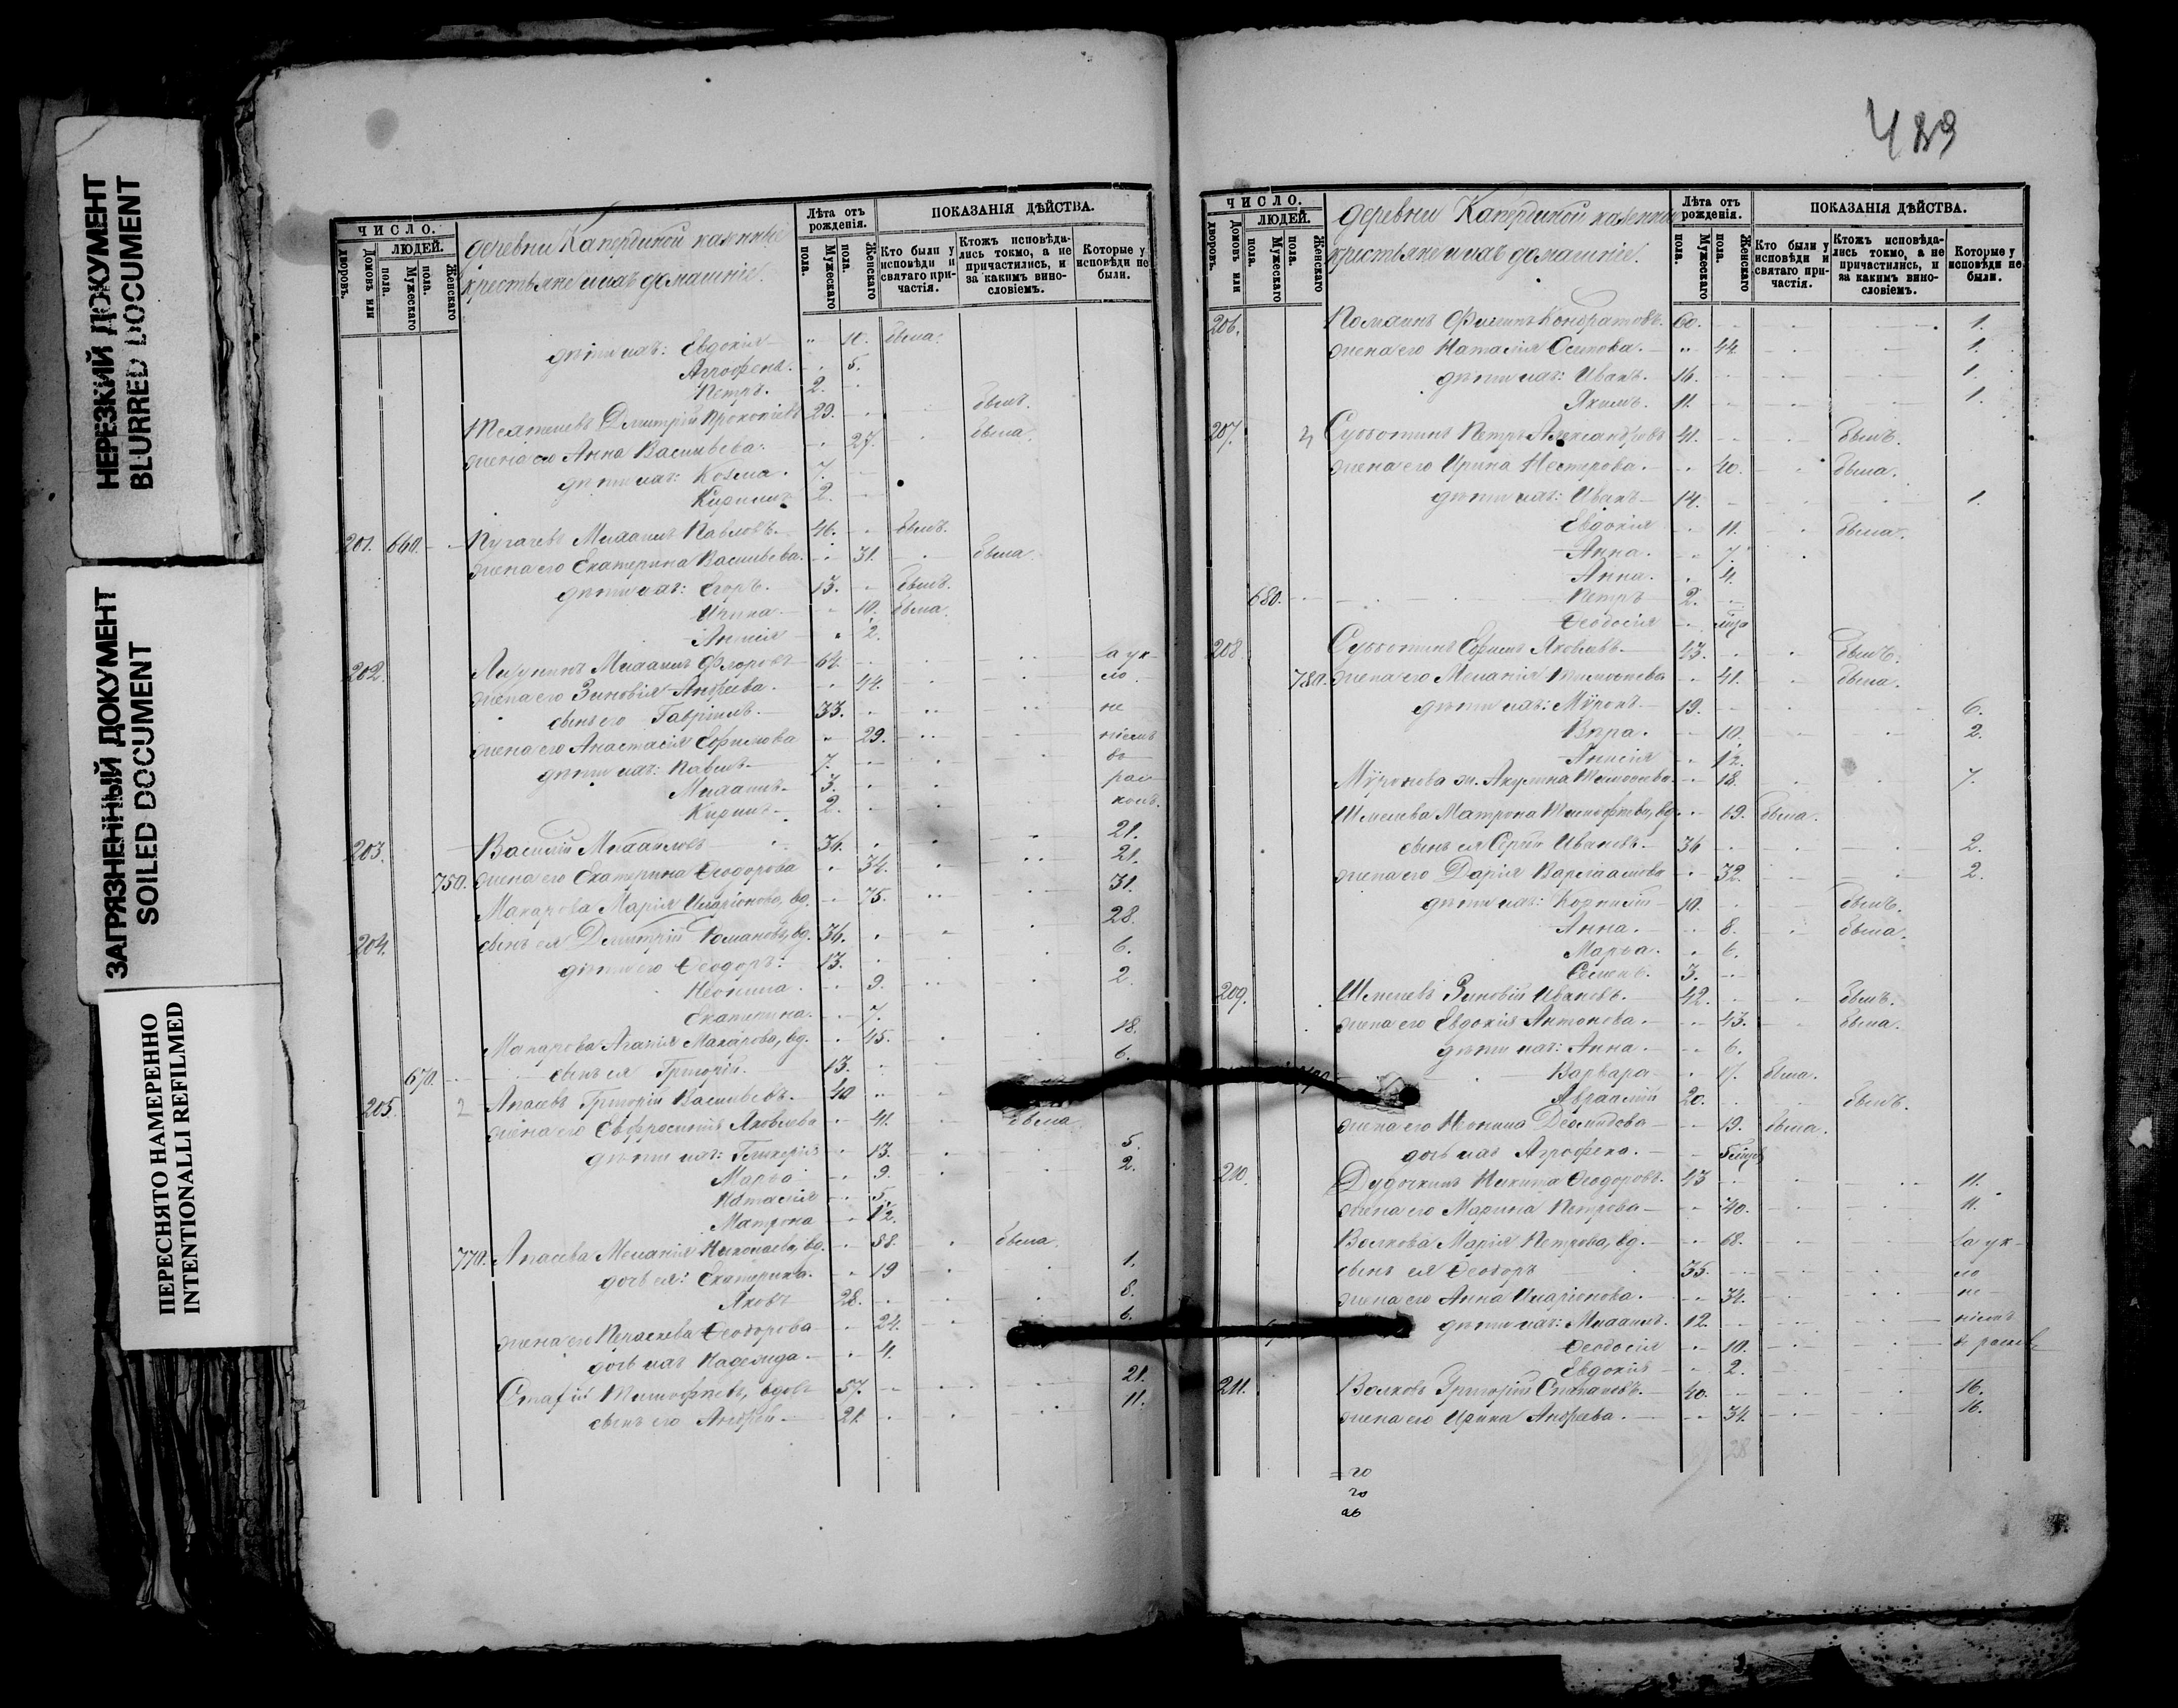 НЕРЕЗКИЙ ДОКУМЕНТ
BLURRED DOCUMENT
ЗАГРЯЗНЕННЫЙ ДОКУМЕНТ
SOILED DOCUMENT
ПЕРЕСНЯТО НАМЕРЕННО
INTENTIONALLI REFILMED
ЧИСЛО.
ЛЮДЕЙ.
Домовъ или дворовъ.
Мужескаго пола.
Женскаго пола.
деревни крестьяне и ихъ домашніе.
Лѣта отъ рожденія.
Мужескаго пола.
Женскаго пола.
ПОКАЗАНІЯ ДѢЙСТВА.
Кто были у исповѣди и святаго причастія.
Ктожъ исповѣдались токмо, а не причастились, и за какимъ винословіемъ.
Которые у исповѣди не были.
дѣти ихъ: Евдокія 10. была.
Агрофена 5.
Петръ. 2.
Дмитрій Прокопіевъ 29. былъ.
жена его Анна Васильева. 27. была.
дѣти ихъ: Козма. 7.
Кирилъ 2.
201. 660. Пугачевъ Михаилъ Павловъ. 46. былъ.
жена его Екатерина Васильева. 31. была
дѣти ихъ: Егоръ. 13. былъ.
Ирина 10. была.
Анисія 2.
202. Михаилъ Флоровъ 64.
жена его Зиновія Андреева. 44.
сынъ его Гавріилъ. 33. не
жена его Анастасія Ефимова 29.
дѣти ихъ: Павелъ 7.
Михаилъ 3.
Кирилъ 2.
203. Василій Михайловъ 36. 21.
750. жена его Екатерина Ѳеодорова 34. 21.
Макарова Марія Иларіонова, вд. 75. 31.
204. сынъ ея Дмитрій Романовъ, вд. 36. 28.
дѣти его Ѳеодоръ. 13. 6.
Неонила. 9. 2.
Екатерина. 7.
Макарова Агапія Макарова, вд. 45. 18.
670. сынъ ея Григорій. 13. 6.
205. 2 Апасевъ Григорій Васильевъ. 40
жена его Евфросинія Яковлева 41. была
дѣти ихъ: Гликерія 13. 5.
Марѳа 9. 2.
Наталія 5.
Матрона
770. Апасева Меланія Николаева, вд. 58. была.
дочь ея: Екатерина. 19 1.
Яковъ 28. 8.
жена его Параскева Ѳеодорова 24. 6.
дочь ихъ Надежда. 4.
Тимофеевъ, вдовъ 57. 21.
сынъ его Андрей 21. 11.
489
ЧИСЛО.
ЛЮДЕЙ.
Домовъ или дворовъ.
Мужескаго пола.
Женскаго пола.
деревни крестьяне и ихъ домашніе.
Лѣта отъ рожденія.
Мужескаго пола.
Женскаго пола.
ПОКАЗАНІЯ ДѢЙСТВА.
Кто были у исповѣди и святаго причастія.
Ктожъ исповѣдались токмо, а не причастились, и за какимъ винословіемъ.
Которые у исповѣди не были.
206. Филипъ Кондратовъ. 60. 1.
жена его Наталія Осипова. 44. 1.
дѣти ихъ: Иванъ. 16. 1.
Якимъ. 11. 1.
207. Субботинъ Петръ Александровъ 41. былъ.
жена его Ирина Нестерова. 40. была.
дѣти ихъ: Иванъ 14. 1.
Евдокія 11. была.
Анна. 7.
Анна. 4.
680. Петръ 2.
Ѳеодосія
208. Субботинъ Ефимъ Яковлевъ 43. былъ.
780. жена его Меланія Тимофеева 41. была.
дѣти ихъ: Мѵронъ 19. 6.
Вѣра. 10. 2.
Анисія 1/2.
Мѵронова ж. Акулина 18. 7.
Шмелева Матрона Тимофеева, вд. 69. была.
сынъ ея Сергій Ивановъ. 36 2.
жена его Дарія Варлаамова 32. 2.
дѣти ихъ: Корнилій 10. былъ.
Анна. 8. была.
Марѳа. 6.
Семенъ. 3.
209. Шмелевъ Зиновій Ивановъ. 42. былъ.
жена его Евдокія Антонова. 43. была.
дѣти ихъ: Анна. 6.
Варвара 17. была.
Авраамій 20. былъ.
жена его Неонила Демидова 19. была.
дочь ихъ Агрофена.
210. Дудочкинъ Никита Ѳеодоровъ. 43 11.
жена его Марина Петрова 40. 11.
Волкова Марія Петрова, вд. 68.
сынъ ея Ѳеодоръ 35.
жена его Анна Иларіонова. 34. не
дѣти ихъ: Михаилъ. 12.
Ѳеодосія 10.
Евдокія 2.
211. Волковъ Григорій Степановъ. 40. 16.
жена его Ирина Андреева. 34. 16.
28
20
20